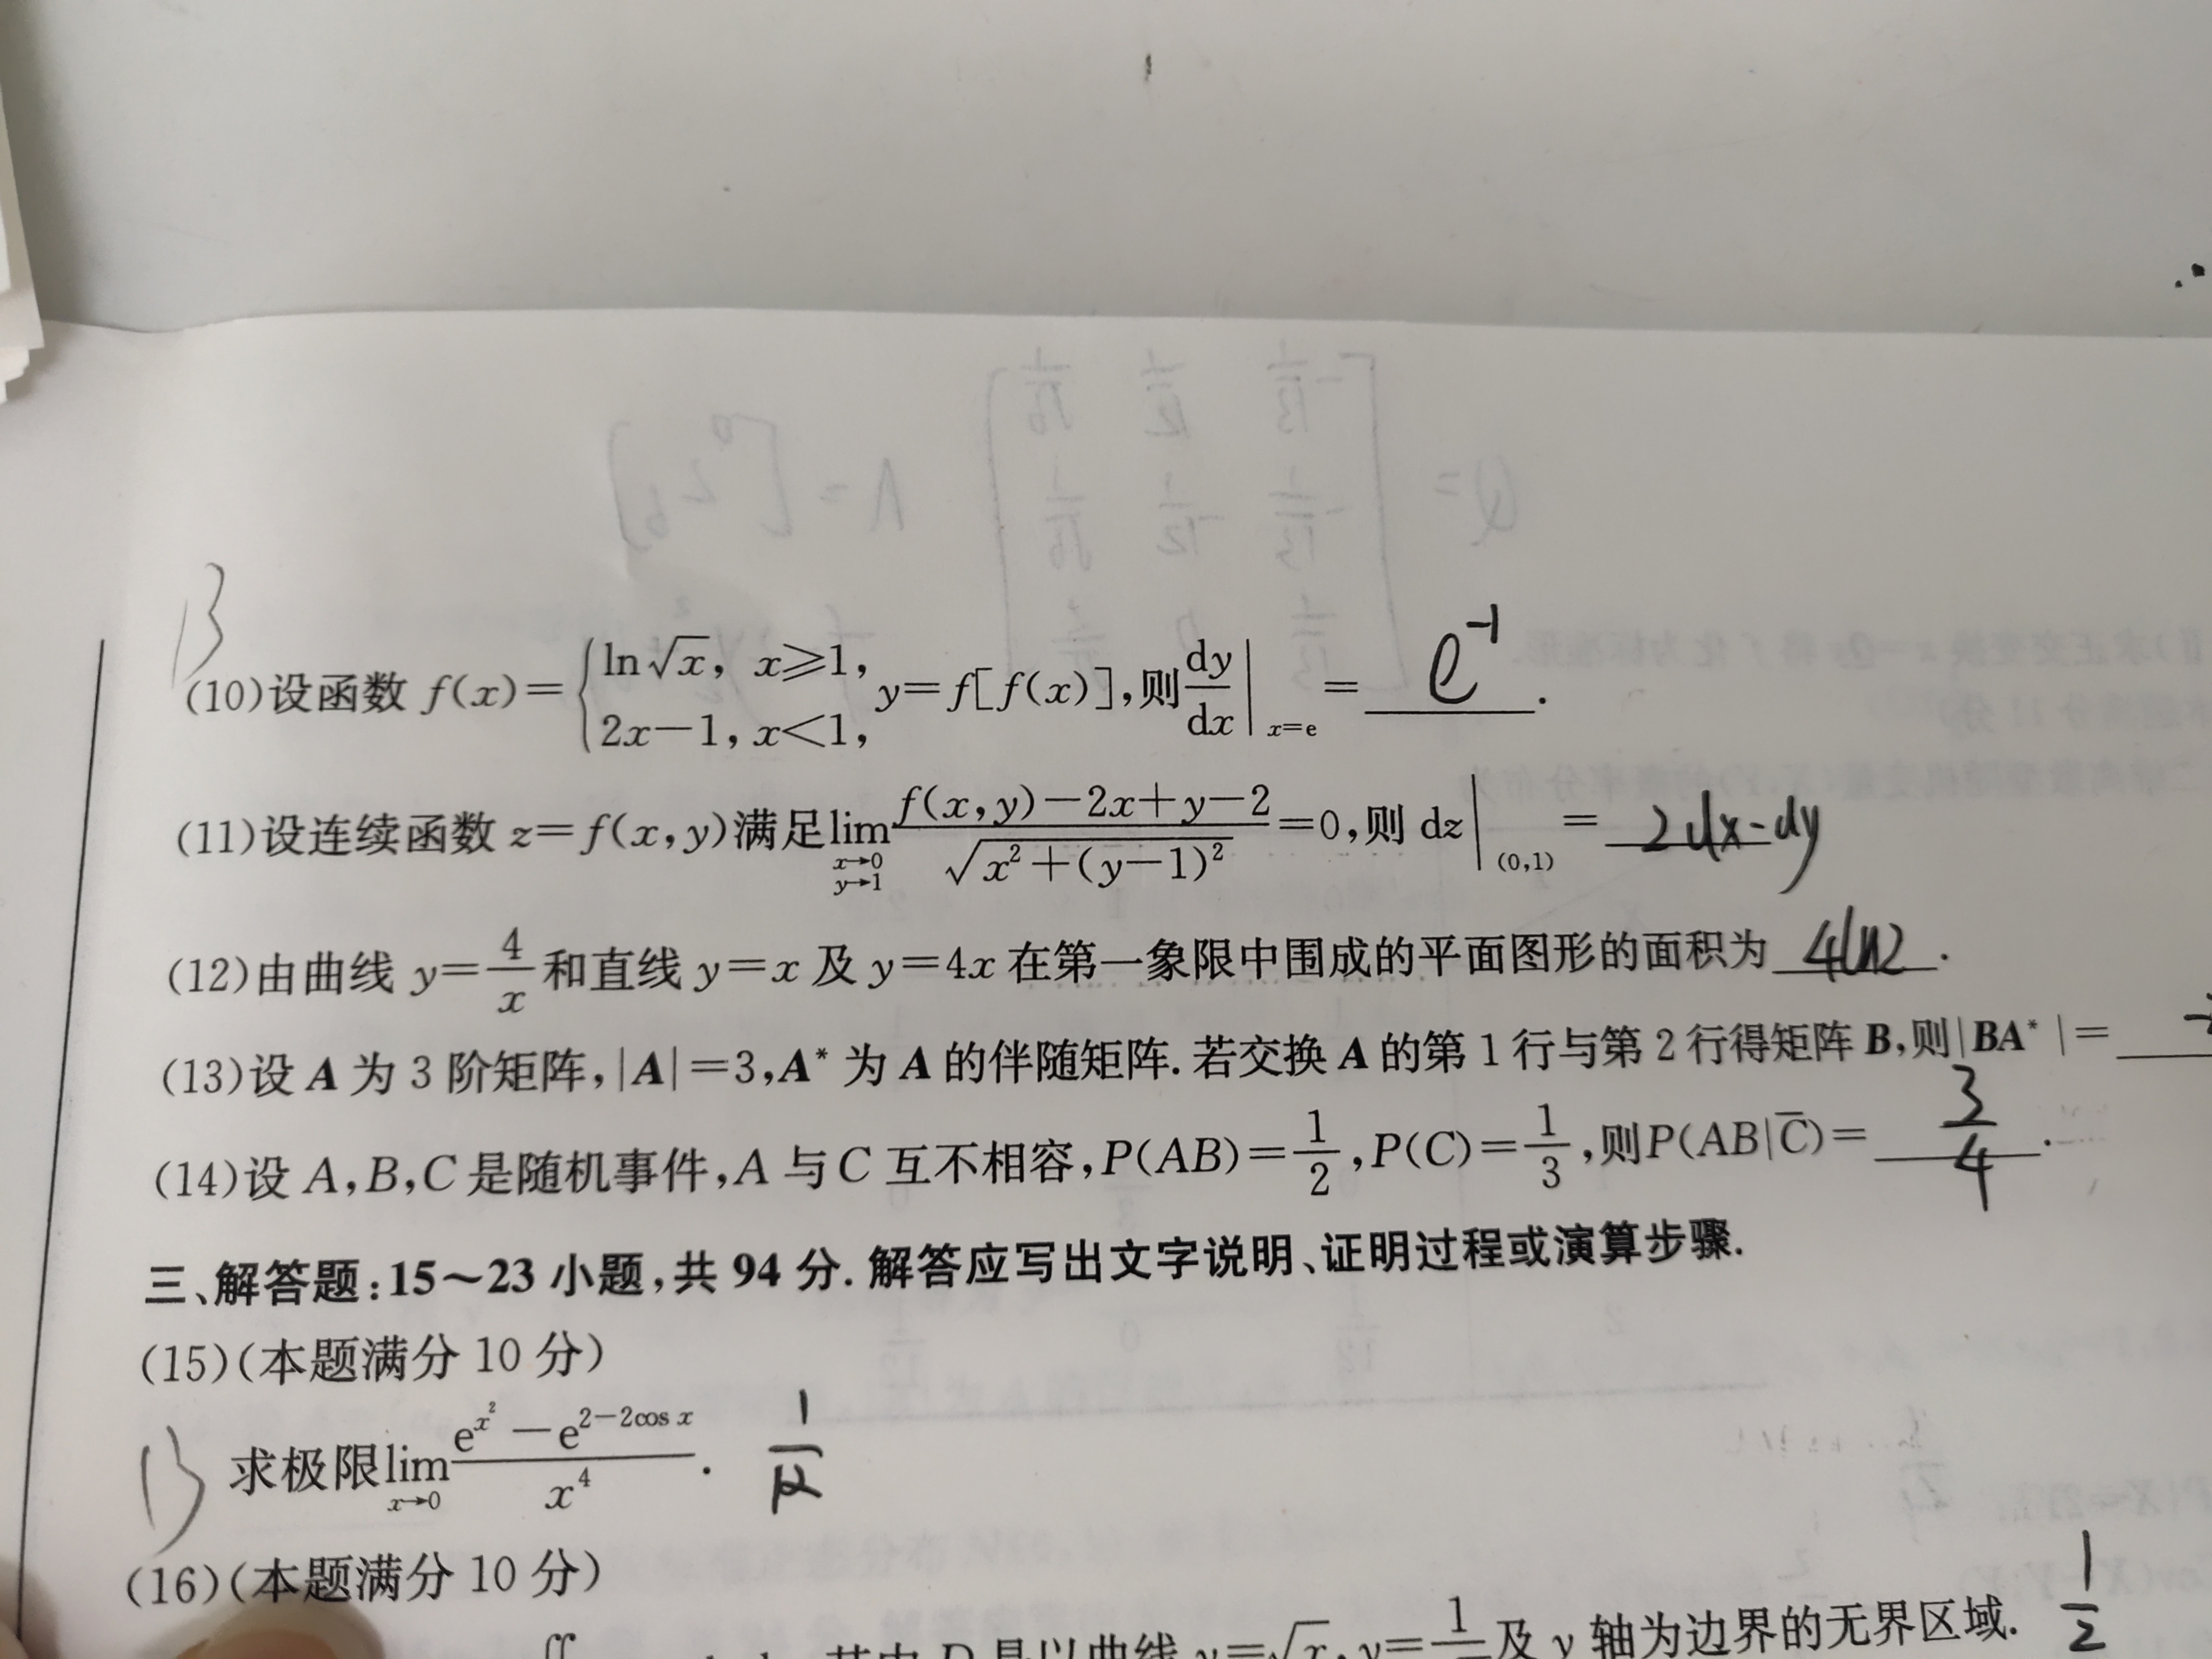 (10)设函数 f(x)={ln√x, x≥1, 2x−1, x<1, y=f[f(x)],则dy/dx|x=e = e⁻¹.
(11)设连续函数 z=f(x,y)满足lim x→0 y→1 (f(x,y)−2x+y−2)/√(x²+(y−1)²)=0,则 dz|(0,1) = 2dx-dy
(12)由曲线 y=4/x 和直线 y=x 及 y=4x 在第一象限中围成的平面图形的面积为 4ln2.
(13)设 A 为 3 阶矩阵,|A|=3,A* 为 A 的伴随矩阵.若交换 A 的第 1 行与第 2 行得矩阵 B,则|BA*|=
(14)设 A,B,C 是随机事件,A 与 C 互不相容,P(AB)=1/2,P(C)=1/3,则P(AB|C̅)= 3/4.
三、解答题:15~23 小题,共 94 分.解答应写出文字说明、证明过程或演算步骤.
(15)(本题满分 10 分)
求极限lim x→0 (e^x²−e^(2−2cos x))/x⁴. 1/12
(16)(本题满分 10 分)
其中 D 是以曲线 y=√x,y=1/ 及 y 轴为边界的无界区域. 1/2